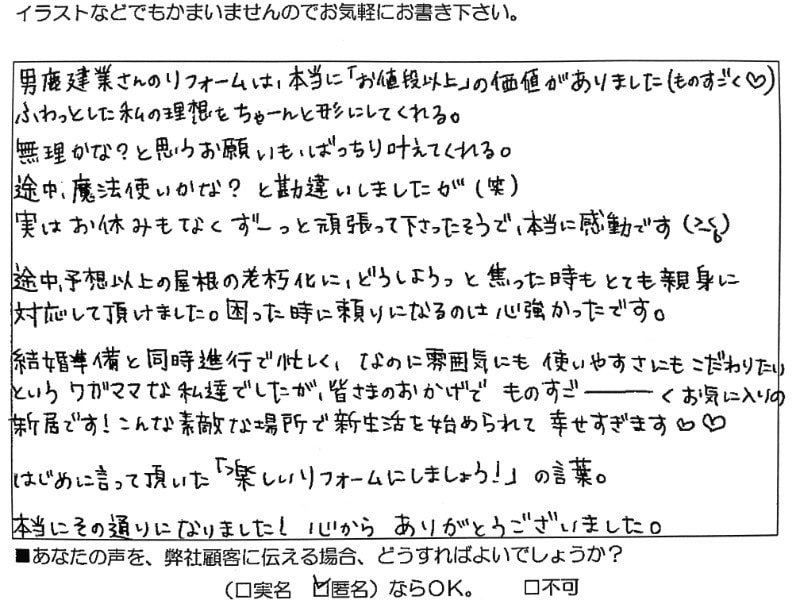 イラストなどでもかまいませんのでお気軽にお書き下さい。
男鹿建業さんのリフォームは、本当に「お値段以上」の価値がありました(ものすごく♡)
ふわっとした私の理想をちゃーんと形にしてくれる。
無理かな?と思うお願いも、ばっちり叶えてくれる。
途中、魔法使いかな? と勘違いしましたが(笑)
実はお休みもなくずーっと頑張って下さったそうで、本当に感動です
途中、予想以上の屋根の老朽化に、どうしようっと焦った時もとても親身に
対応して頂けました。困った時に頼りになるのは心強かったです。
結婚準備と同時進行で忙しく、なのに雰囲気にも使いやすさにもこだわりたい
というワガママな私達でしたが、皆さまのおかげでものすごーーーくお気に入りの
新居です!こんな素敵な場所で新生活を始められて幸せすぎます♡♡
はじめに言って頂いた「楽しいリフォームにしましょう!」の言葉。
本当にその通りになりました! 心からありがとうございました。
■あなたの声を、弊社顧客に伝える場合、どうすればよいでしょうか?
(□実名 ☑匿名)ならOK。 □不可